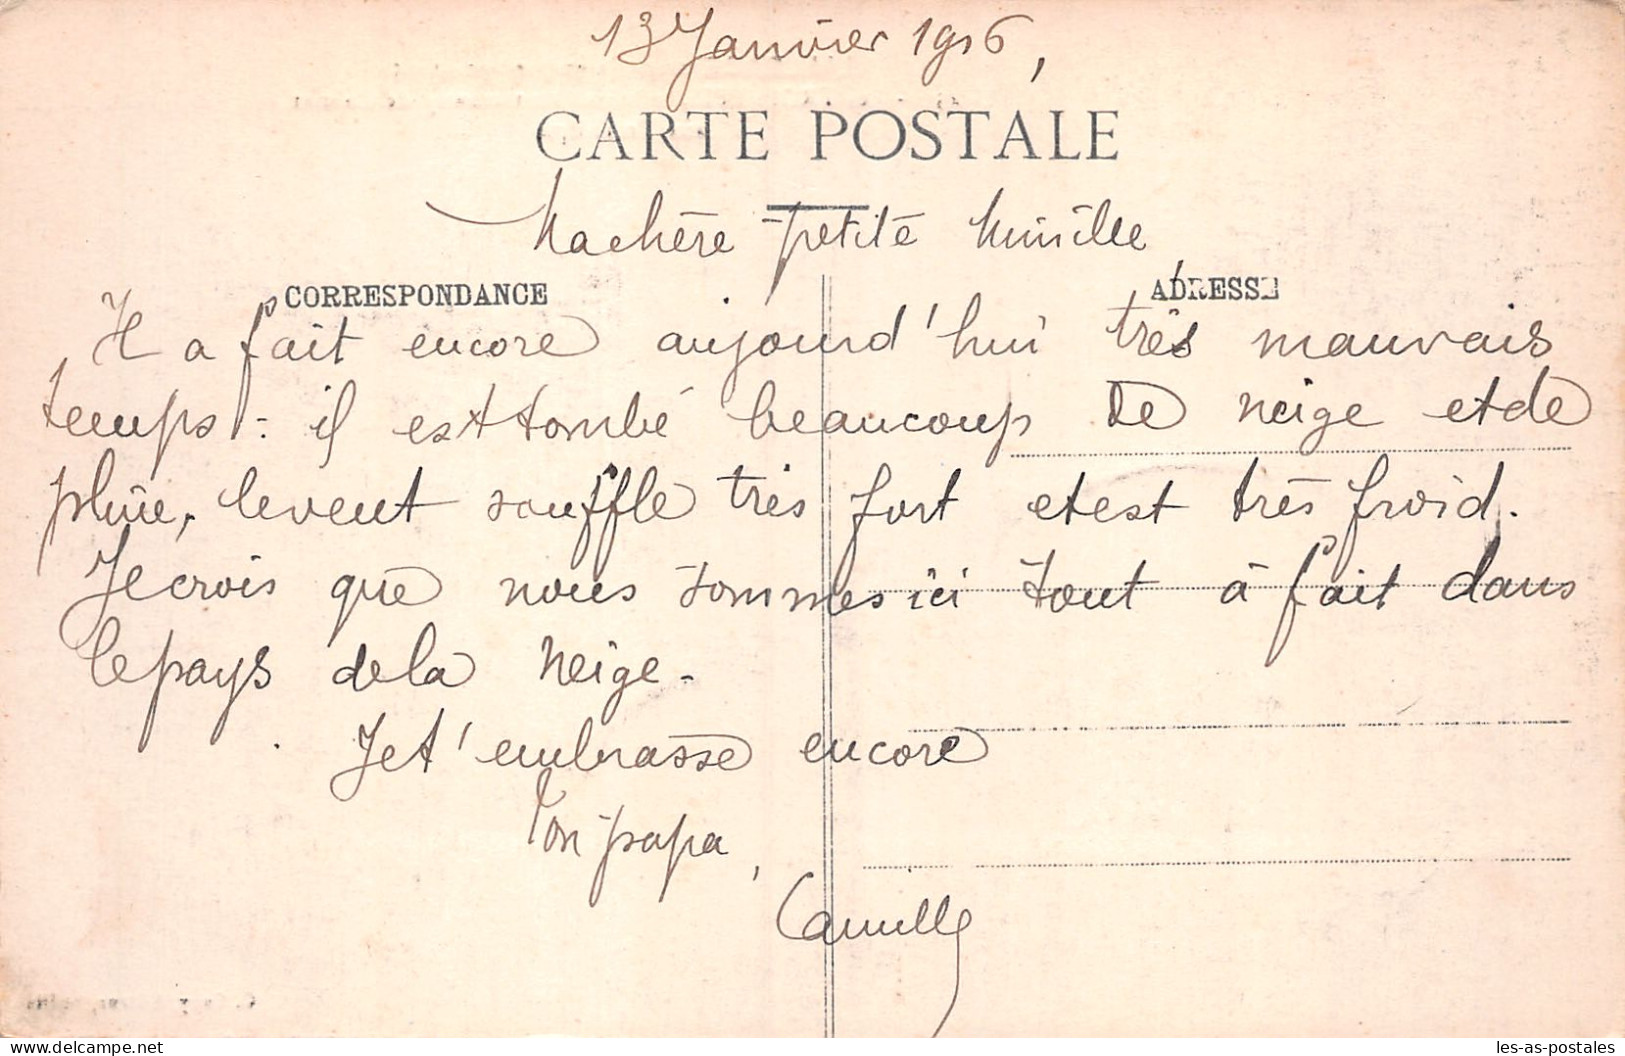 13 Janvier 1916,
CARTE POSTALE
Ma chère petite Mimille
CORRESPONDANCE
ADRESSE
Il a fait encore aujourd'hui très mauvais
temps : il est tombé beaucoup de neige et de
pluie, le vent souffle très fort et est très froid.
Je crois que nous sommes ici tout à fait dans
le pays de la neige.
Je t'embrasse encore
Ton papa,
Camille
les-as-postales